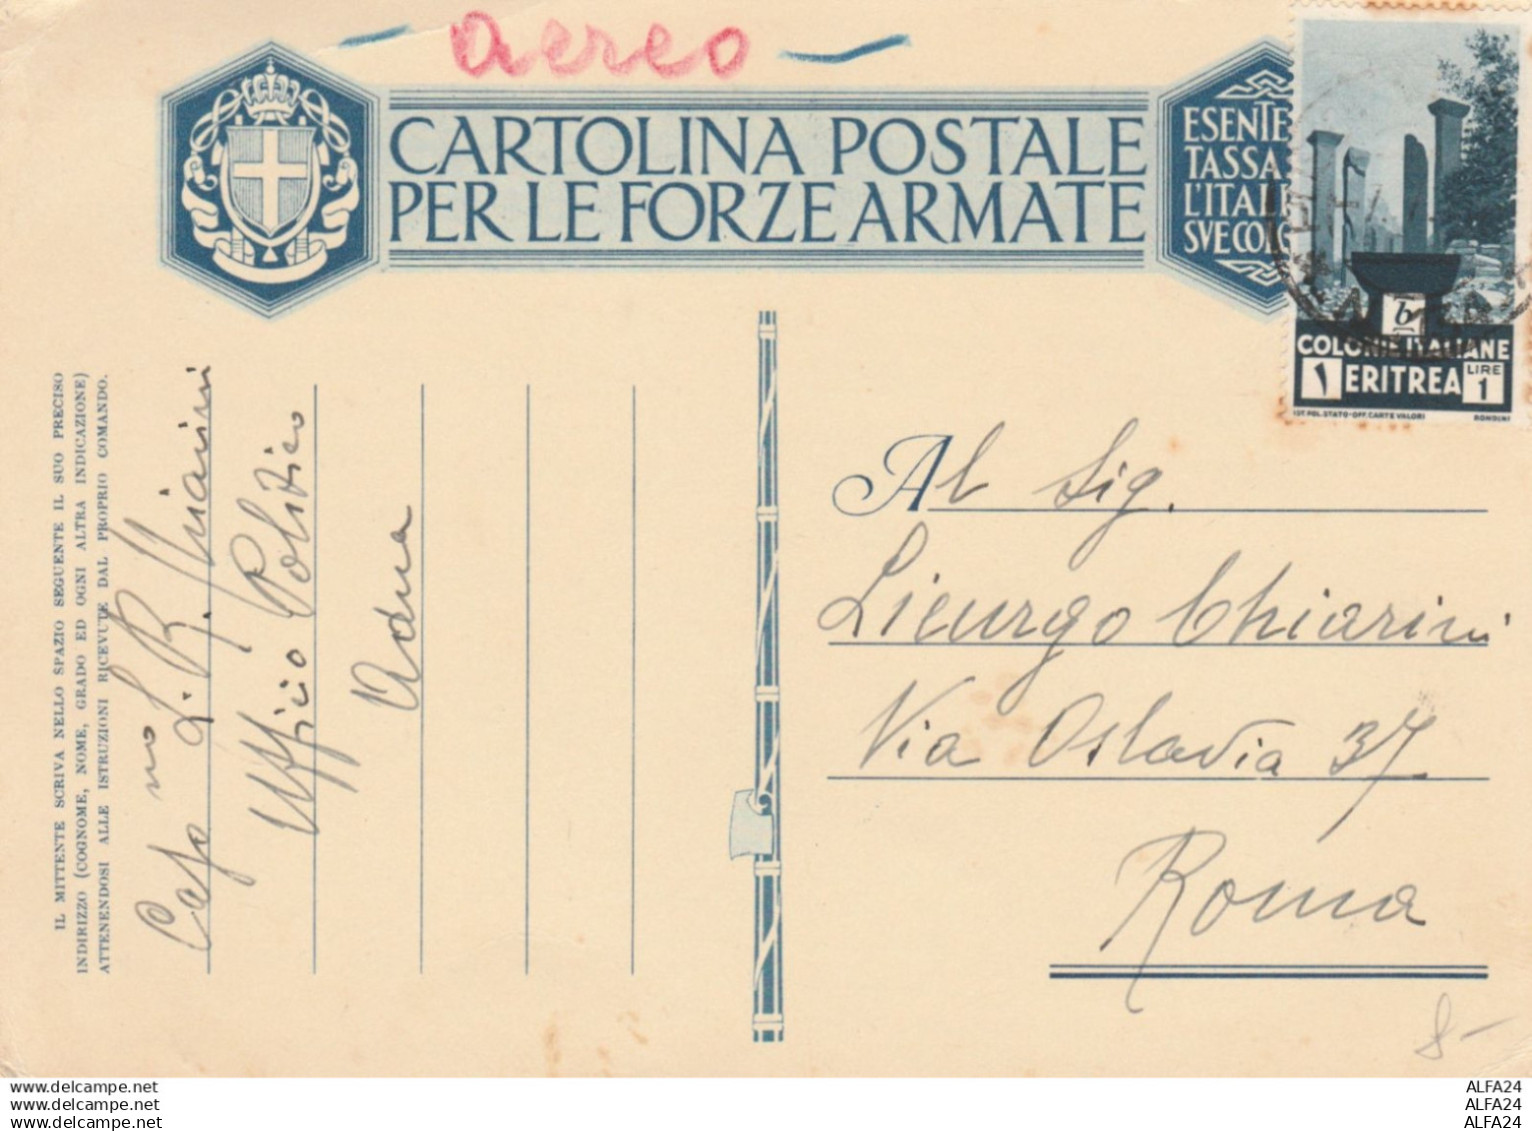 aereo
CARTOLINA POSTALE
PER LE FORZE ARMATE
ESENTE
TASSA
L'ITALI
SVE COLO
b
COLONIE ITALIANE
1 ERITREA LIRE 1
IST. POL. STATO-OFF. CARTE VALORI RONDINI
IL MITTENTE SCRIVA NELLO SPAZIO SEGUENTE IL SUO PRECISO
INDIRIZZO (COGNOME, NOME, GRADO ED OGNI ALTRA INDICAZIONE)
ATTENENDOSI ALLE ISTRUZIONI RICEVUTE DAL PROPRIO COMANDO.
Capo mo L. R. Chiarini
Ufficio Politico
Adua
Al Sig.
Licurgo Chiarini
Via Oslavia 37
Roma
8-
www.delcampe.net
www.delcampe.net
www.delcampe.net
ALFA24
ALFA24
ALFA24